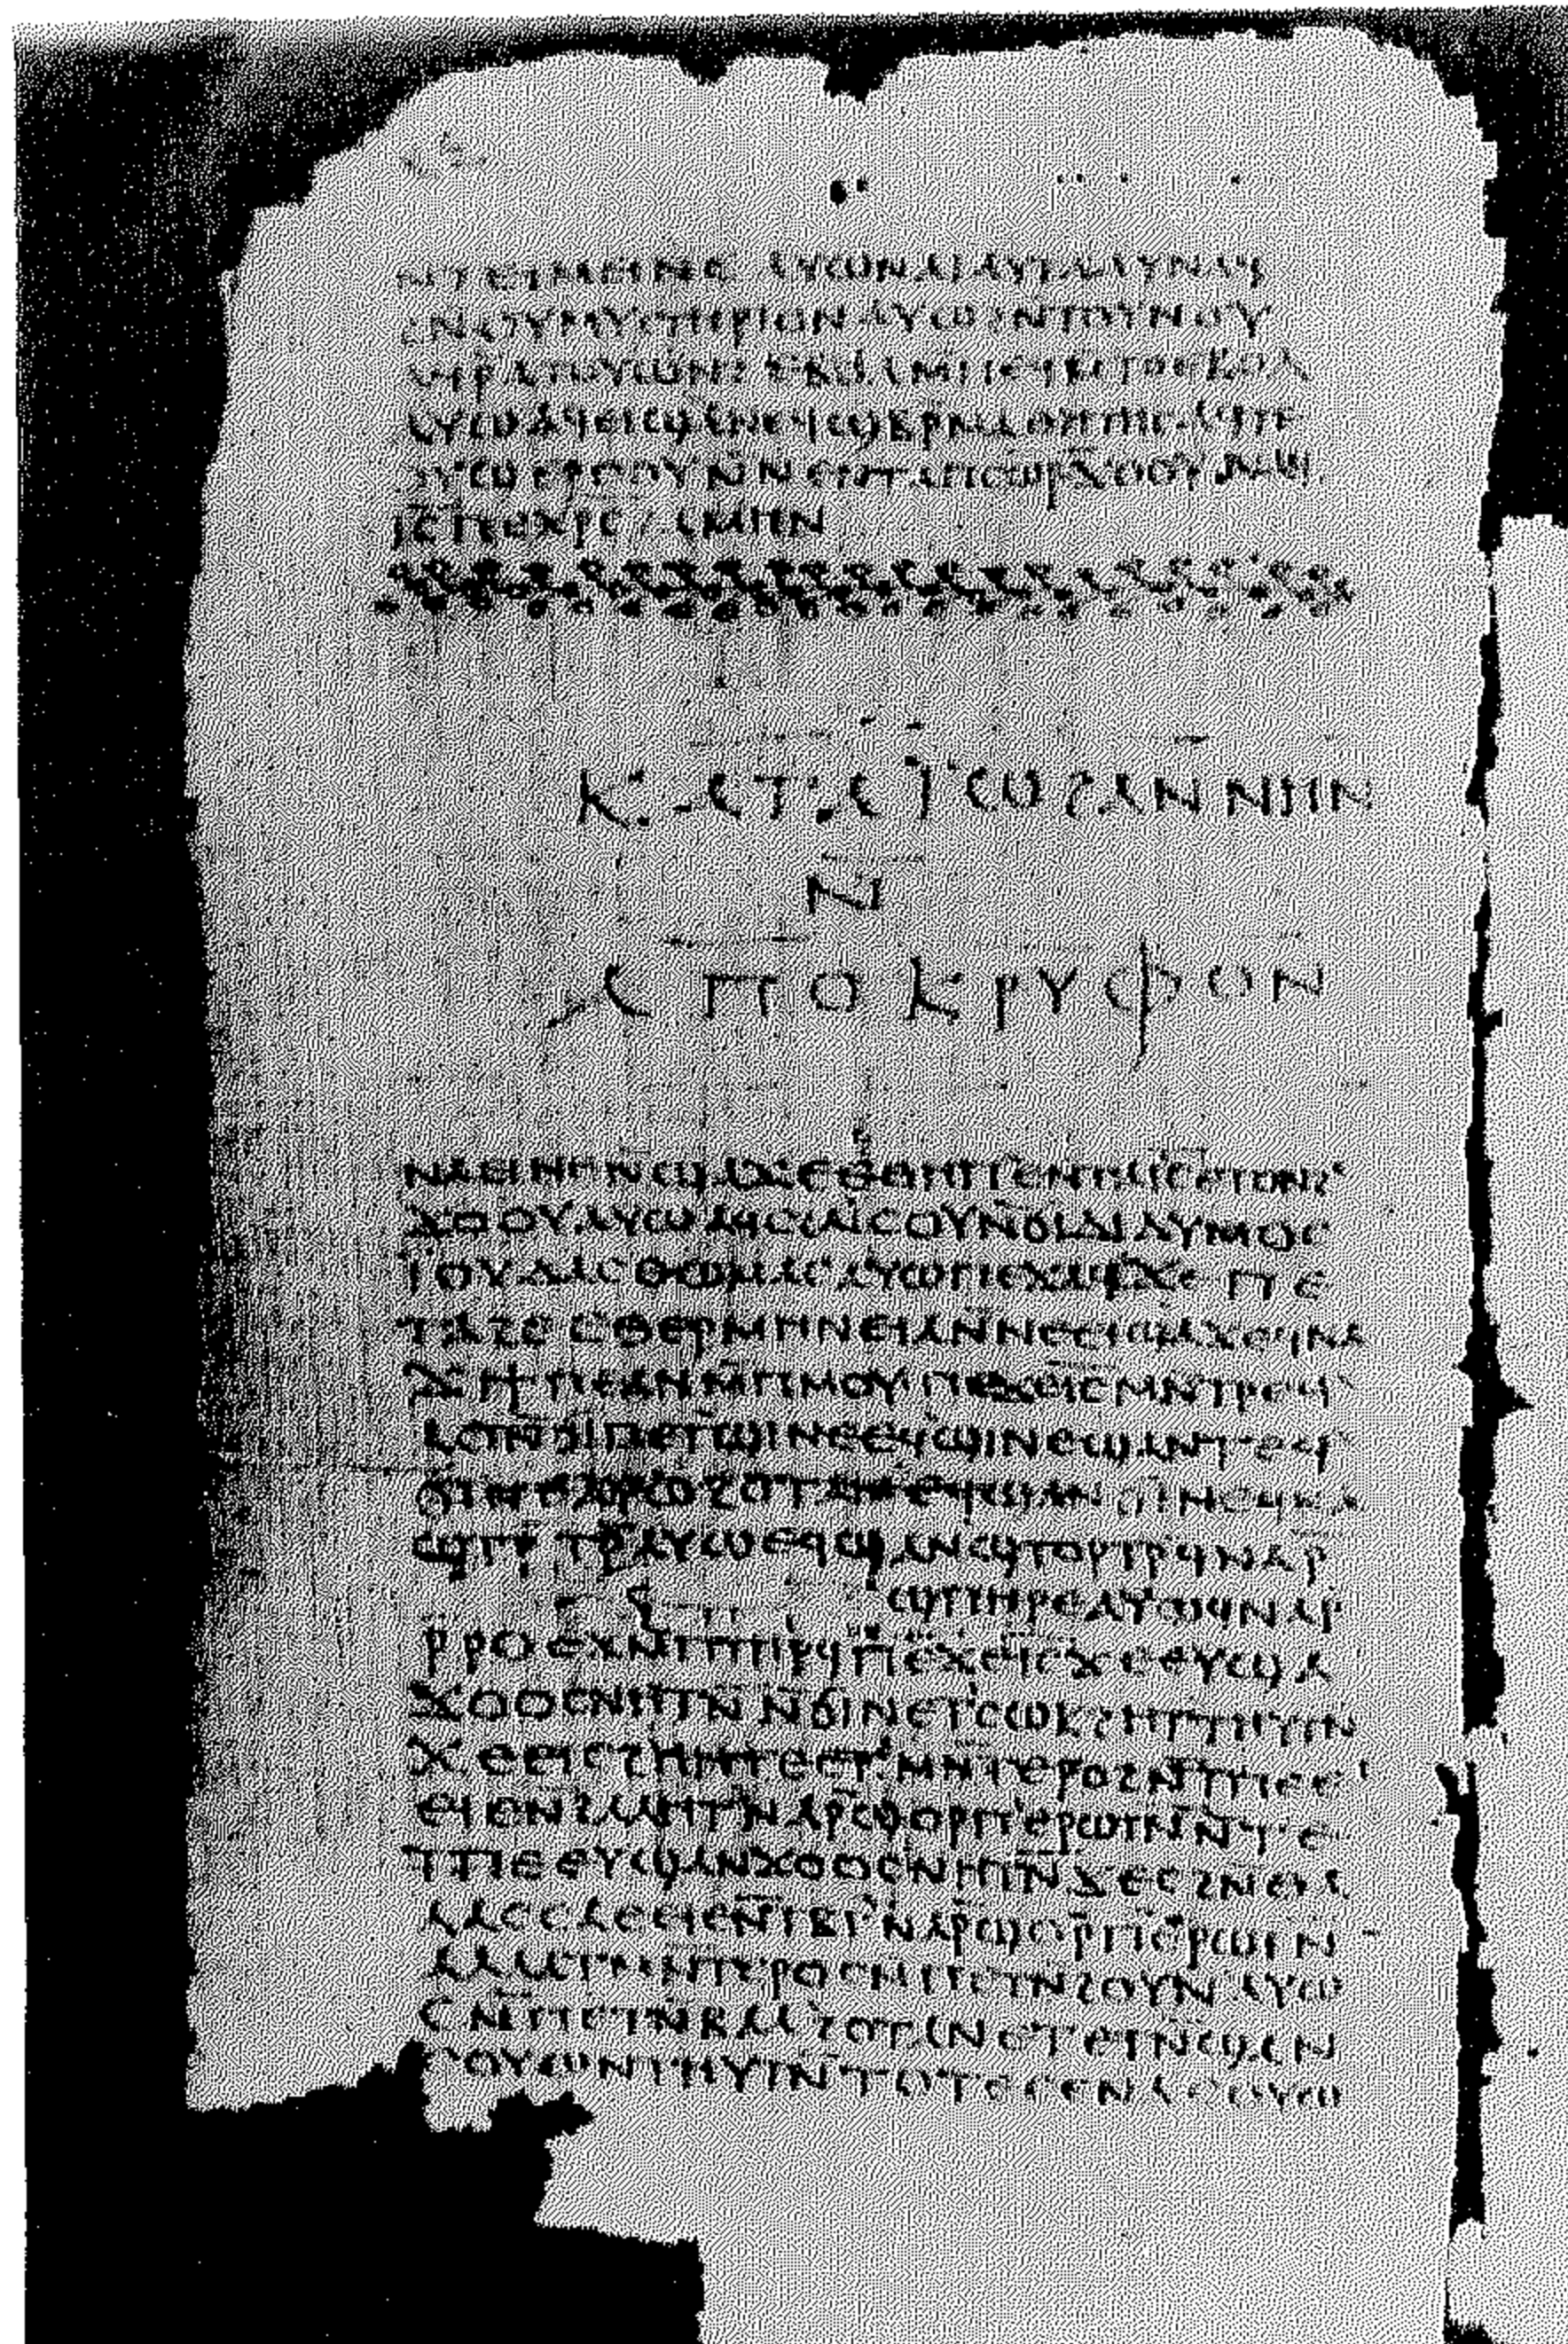 ⲛⲧⲉⲉⲓⲙⲉⲓⲛⲉ ⲁⲩⲱ ⲛⲁⲓ ⲁⲩⲧⲁⲁⲩ ⲛⲁϥ
ϩⲛ ⲟⲩⲙⲩⲥⲧⲏⲣⲓⲟⲛ ⲁⲩⲱ ϩⲛ ⲧⲟⲩⲛⲟⲩ
ⲁϥⲣ̄ⲁⲧⲟⲩⲱⲛϩ ⲉⲃⲟⲗ ⲙⲡⲉϥⲙⲧⲟ ⲉⲃⲟⲗ
ⲁⲩⲱ ⲁϥⲉⲓ ϣⲁ ⲛⲉϥϣⲃⲣⲙⲁⲑⲏⲧⲏⲥ ⲁϥⲧⲉ
ⲟⲩⲱ ⲉⲣⲟⲟⲩ ⲛⲛⲉⲛⲧⲁⲡⲥⲱⲣ̄ ϫⲟⲟⲩ ⲛⲁϥ
ⲓ̅ⲥ̅ ⲡⲉⲭⲣ̅ⲥ̅ ϩⲁⲙⲏⲛ
ⲕⲁⲧⲁ ⲓⲱϩⲁⲛⲛⲏⲛ
ⲛ̄
ⲁⲡⲟⲕⲣⲩⲫⲟⲛ
ⲛⲁⲉⲓ ⲛⲉ ⲛ̄ϣⲁϫⲉ ⲉⲑⲏⲡ ⲉⲛⲧⲁⲓ̅ⲥ̅ ⲉⲧⲟⲛϩ
ϫⲟⲟⲩ ⲁⲩⲱ ⲁϥⲥϩⲁⲓⲥⲟⲩ ⲛ̄ϭⲓ ⲇⲓⲇⲩⲙⲟⲥ
ⲓ̈ⲟⲩⲇⲁⲥ ⲑⲱⲙⲁⲥ ⲁⲩⲱ ⲡⲉϫⲁϥ ϫⲉ ⲡⲉ
ⲧⲁϩⲉ ⲉⲑⲉⲣⲙⲏⲛⲉⲓⲁ ⲛ̄ⲛⲉⲉⲓϣⲁϫⲉ ϥⲛⲁ
ϫⲓ ϯⲡⲉ ⲁⲛ ⲙ̄ⲡⲙⲟⲩ ⲡⲉϫⲉ ⲓ̅ⲥ̅ ⲙⲛ̄ⲧⲣⲉϥ
ⲗⲟ ⲛ̄ϭⲓ ⲡⲉⲧϣⲓⲛⲉ ⲉϥϣⲓⲛⲉ ϣⲁⲛⲧⲉϥ
ϭⲓⲛⲉ ⲁⲩⲱ ϩⲟⲧⲁⲛ ⲉϥϣⲁⲛϭⲓⲛⲉ ϥⲛⲁ
ϣⲧⲣ̄ⲧⲣ̄ ⲁⲩⲱ ⲉϥϣⲁⲛϣⲧⲟⲣⲧⲣ̄ ϥⲛⲁⲣ̄
ϣⲡⲏⲣⲉ ⲁⲩⲱ ϥⲛⲁⲣ̄
ⲣ̄ⲣⲟ ⲉϫⲙ̄ ⲡⲧⲏⲣϥ ⲡⲉϫⲉ ⲓ̅ⲥ̅ ϫⲉ ⲉⲩϣⲁ
ϫⲟⲟⲥ ⲛⲏⲧⲛ̄ ⲛ̄ϭⲓ ⲛⲉⲧⲥⲱⲕ ϩⲏⲧ ⲧⲏⲩⲧⲛ̄
ϫⲉ ⲉⲓⲥϩⲏⲏⲧⲉ ⲉⲧⲙⲛ̄ⲧⲉⲣⲟ ϩⲛ̄ ⲧⲡⲉ ⲉ
ⲉⲓⲉ ⲛ̄ϩⲁⲗⲏⲧ ⲛⲁⲣ̄ ϣⲟⲣⲡ ⲉⲣⲱⲧⲛ̄ ⲛ̄ⲧⲉ
ⲧⲡⲉ ⲉⲩϣⲁⲛϫⲟⲟⲥ ⲛⲏⲧⲛ̄ ϫⲉ ⲥϩⲛ̄ ⲑⲁ
ⲗⲁⲥⲥⲁ ⲉⲉⲓⲉ ⲛ̄ⲧⲃ̄ⲧ ⲛⲁⲣ̄ ϣⲟⲣⲡ ⲉⲣⲱⲧⲛ̄
ⲁⲗⲗⲁ ⲧⲙⲛ̄ⲧⲉⲣⲟ ⲥⲙ̄ⲡⲉⲧⲛ̄ϩⲟⲩⲛ ⲁⲩⲱ
ⲥⲙ̄ⲡⲉⲧⲛ̄ⲃⲁⲗ ϩⲟⲧⲁⲛ ⲉⲧⲉⲧⲛ̄ϣⲁⲛ
ⲥⲟⲩⲱⲛ ⲧⲏⲩⲧⲛ̄ ⲧⲟⲧⲉ ⲥⲉⲛⲁⲥⲟⲩⲱ